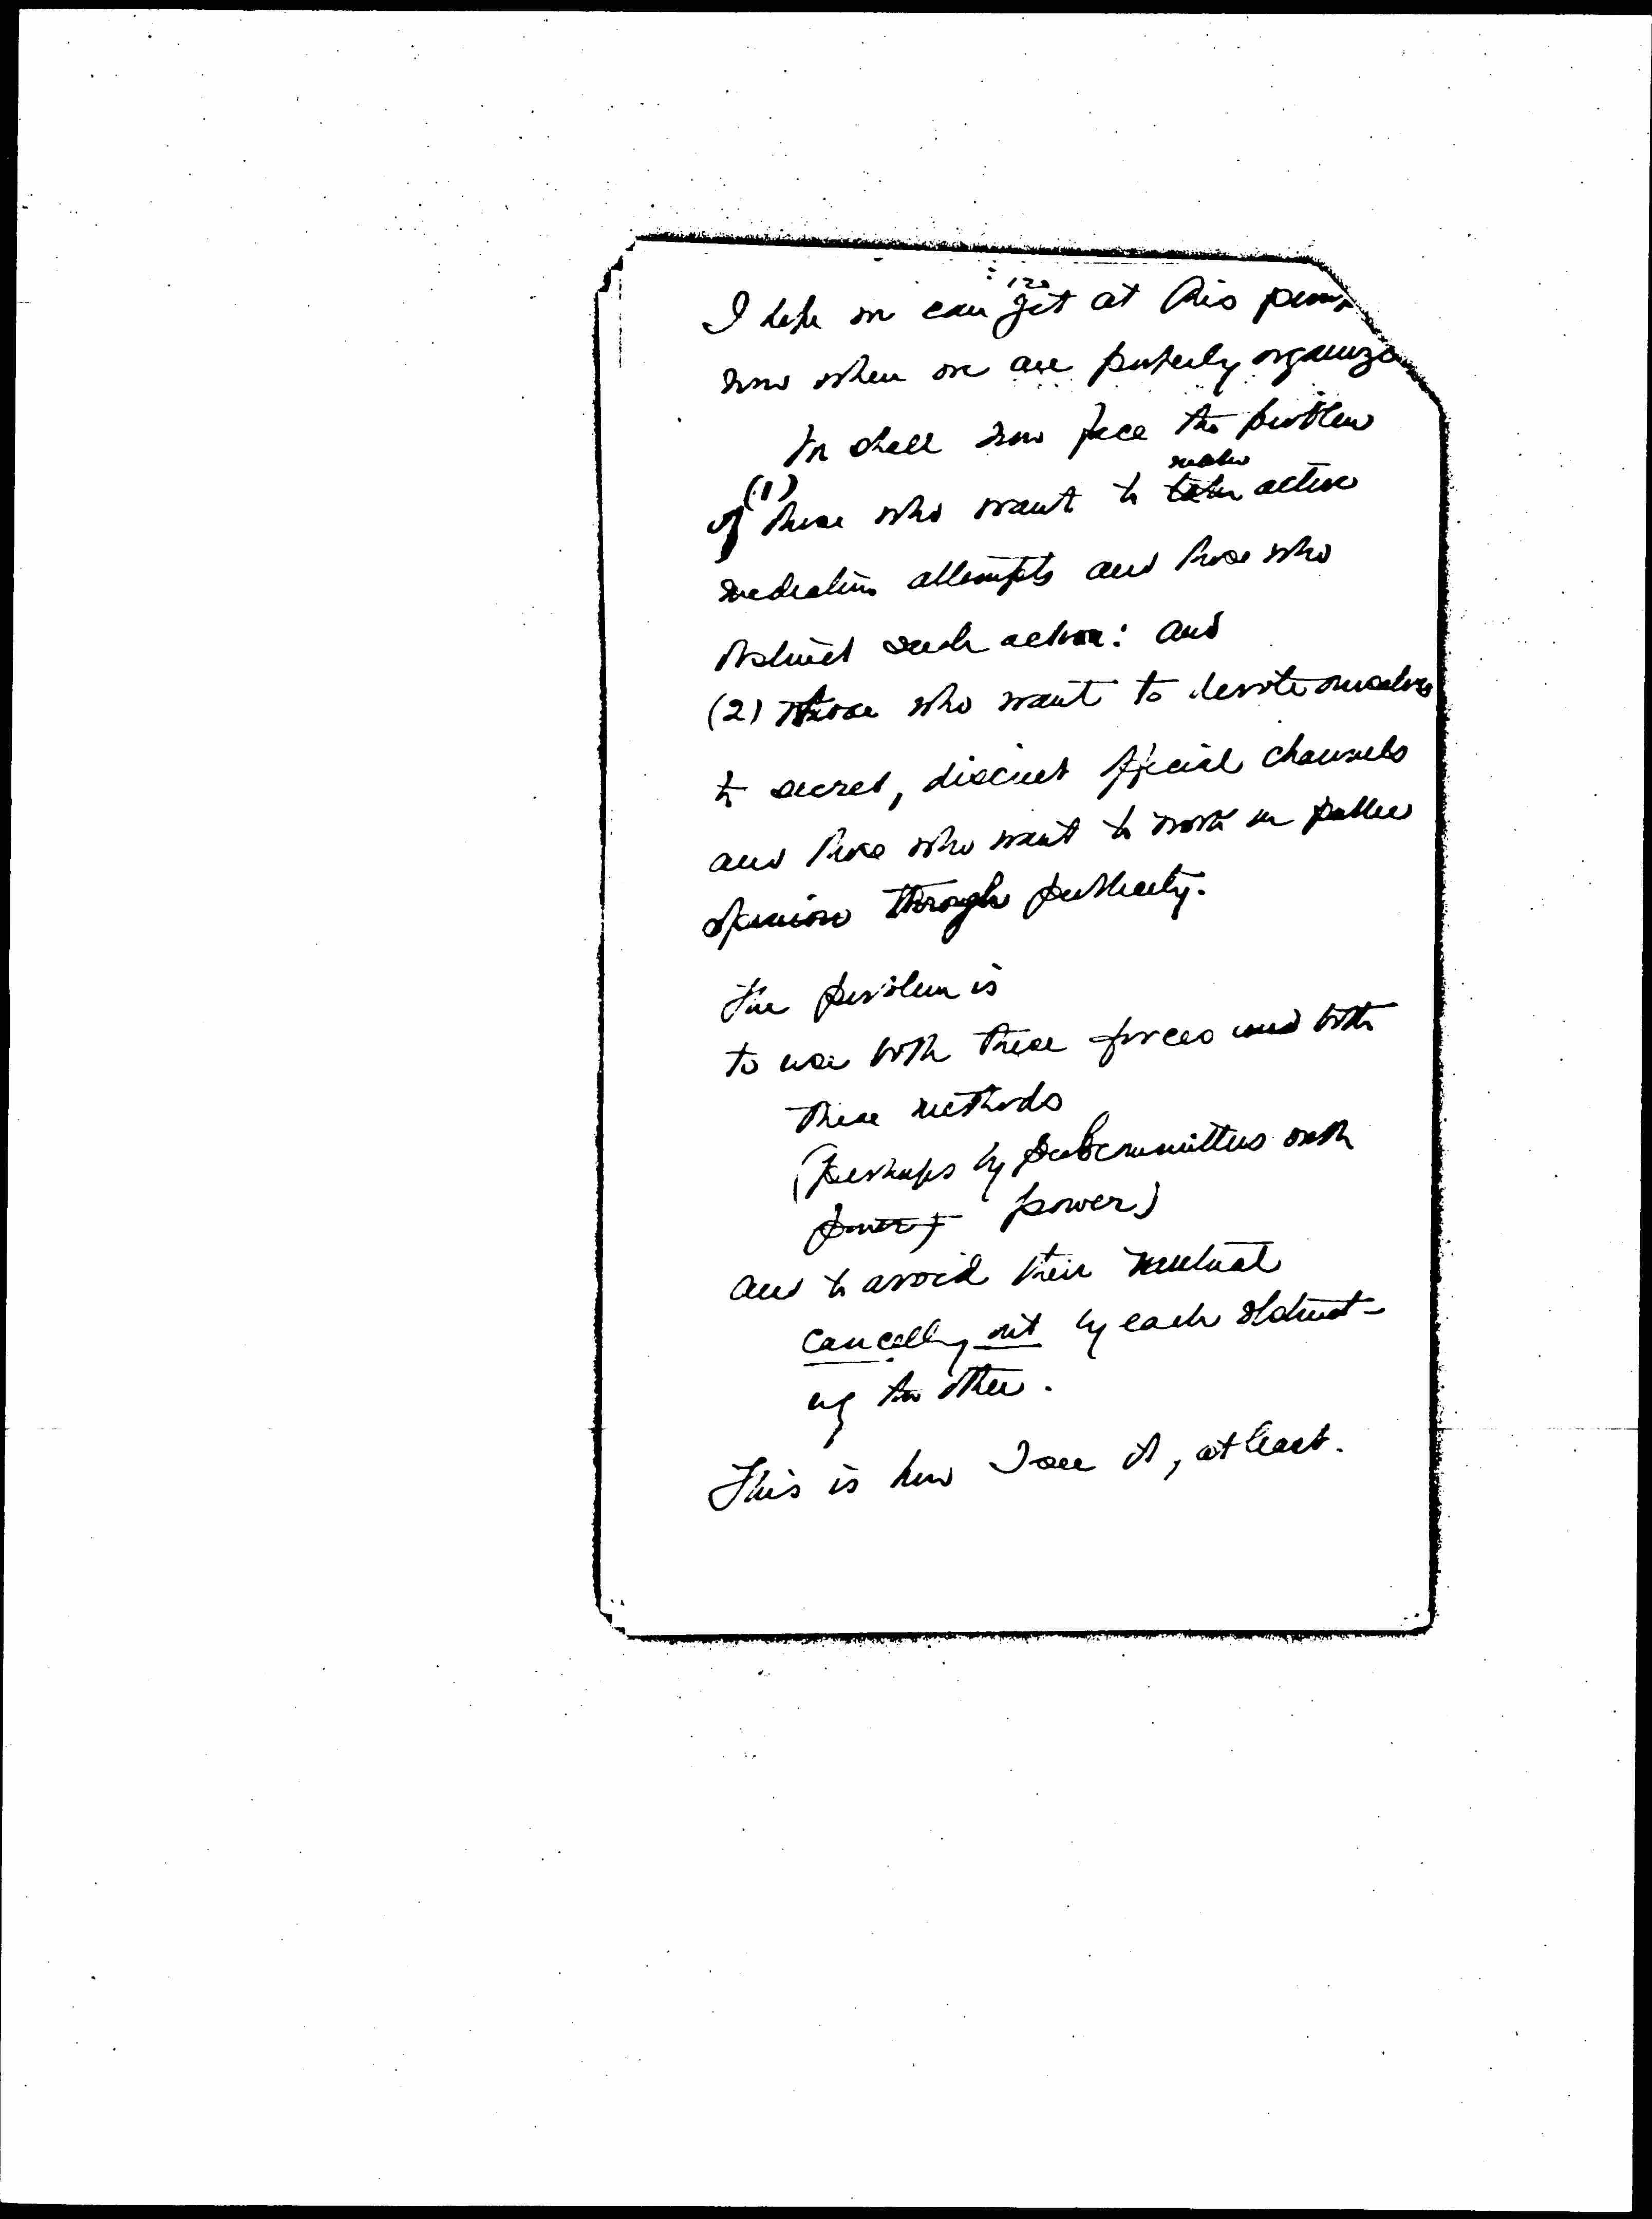 120
I hope we can get at this point
now when we are properly organize
We shall now face the problem
of (1) those who want to take make active
mediation attempts and those who
obstruct such action: and
(2) those who want to devote ourselves
to secret, discreet official channels
and those who want to work on public
opinion through publicity.
The problem is
to use both these forces and both
these methods
(perhaps by subcommittees with
power) power)
and to avoid their mutual
cancelling out by each obstruct-
ing the other.
This is how I see it, at least.